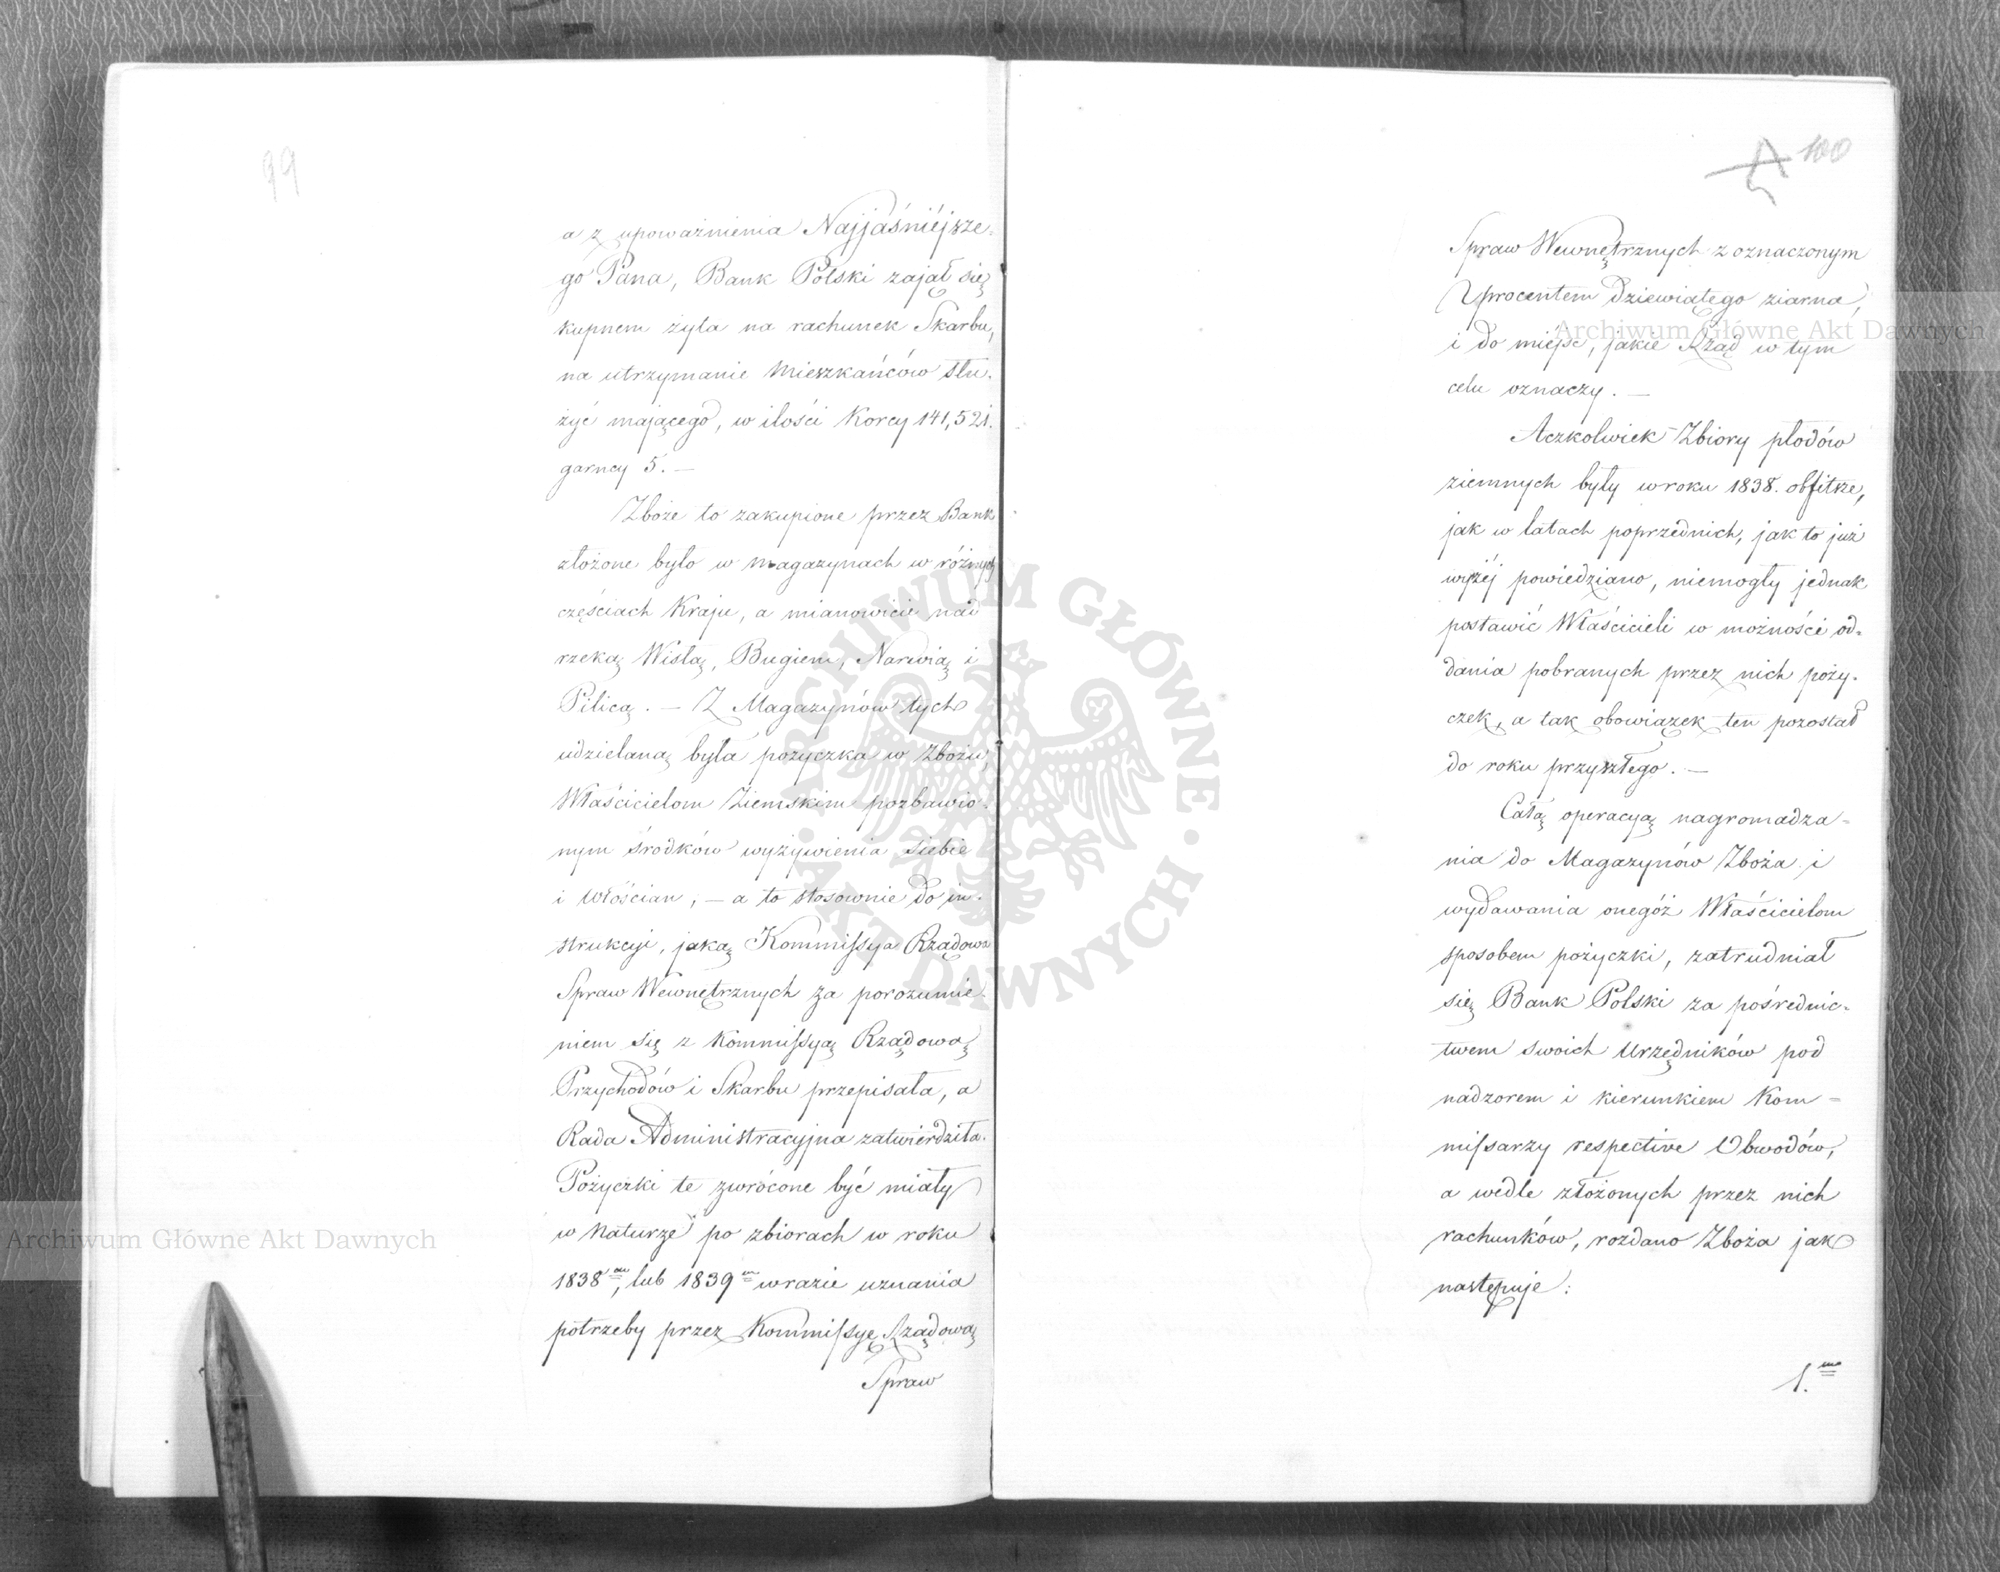 99
a z upoważnienia Najjaśniéjsze-
go Pana, Bank Polski zajął się
kupnem żyta na rachunek Skarbu,
na utrzymanie Mieszkańców słu-
żyć mającego, w ilości Korcy 141,521.
garncy 5. —
Zboże to zakupione przez Bank
złożone było w magazynach w różnych
częściach Kraju, a mianowicie nad
rzeką Wisłą, Bugiem, Narwią i
Pilicą. — Z Magazynów tych
udzielaną była pożyczka w Zbożu,
Właścicielom Ziemskim pozbawio-
nym środków wyżywienia siebie
i Włościan, — a to stosownie do in-
strukcyi, jaką Kommissya Rządowa
Spraw Wewnętrznych za porozumie-
niem się z Kommissyą Rządową
Przychodów i Skarbu przepisała, a
Rada Administracyjna zatwierdziła.
Pożyczki te zwrócone być miały
w Naturze po zbiorach w roku
1838, lub 1839 w razie uznania
potrzeby przez Kommissyę Rządową
Spraw
100
Spraw Wewnętrznych z oznaczonym
procentem dziewiątego ziarna,
i do miéjsc, jakie Rząd w tym
celu oznaczy. —
Aczkolwiek Zbiory płodów
ziemnych były w roku 1838. obfitsze,
jak w latach poprzednich, jak to już
wyżéj powiedziano, niemogły jednak
postawić Właścicieli w możności od-
dania pobranych przez nich poży-
czek, a tak obowiązek ten pozostał
do roku przyszłego. —
Całą operacyą nagromadza-
nia do Magazynów Zboża i
wydawania onegóż Właścicielom
sposobem pożyczki, zatrudniał
się Bank Polski za pośrednic-
twem swoich Urzędników pod
nadzorem i kierunkiem Kom-
missarzy respective Obwodów,
a wedle złożonych przez nich
rachunków, rozdano Zboża jak
następuje:
1.mo
Archiwum Główne Akt Dawnych
Archiwum Główne Akt Dawnych
ARCHIWUM GŁÓWNE · AKT DAWNYCH ·